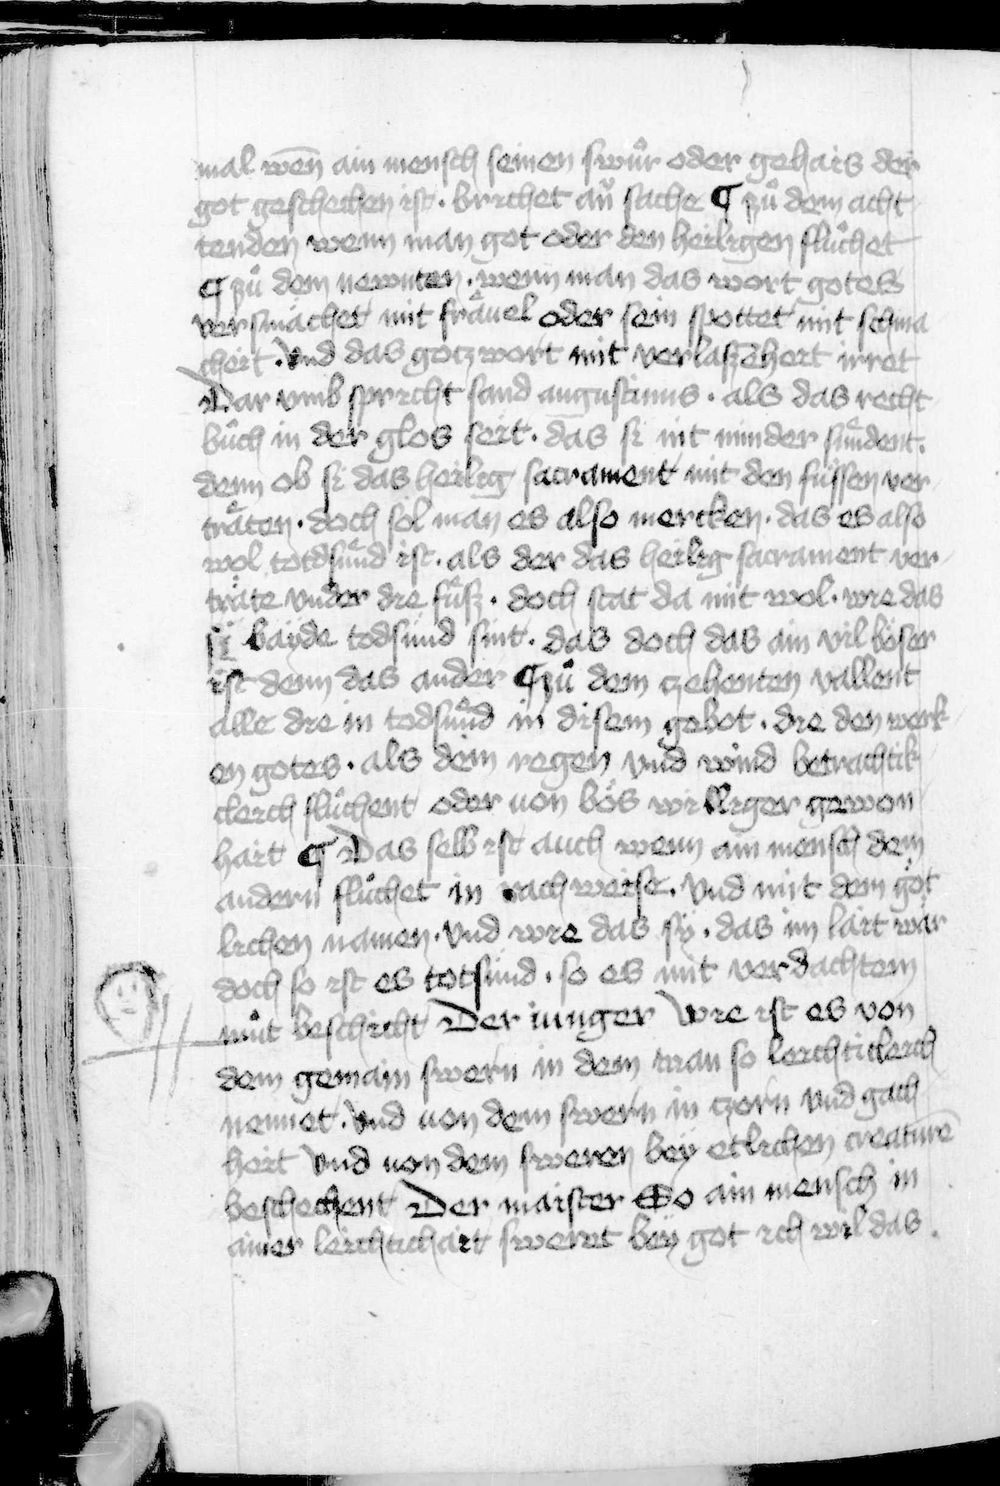 mal wen̄ ain mensch seinen swůr oder gehais der
got geschechen ist · brichet an̄ sache ¶ zů dem acht
tenden wenn man got oder den heiligen flůchet
¶ zů dem newnten · wenn man das wort gotes
versmachet mit fräuel oder sein spottet mit schma
cheit · Vnd das gotzwort mit verlaszeheit irret
Dar vmb spricht sand augustinus · als das recht
bůch in der glos seit · das si nit minder sündent ·
denn ob si das heilig sacrament mit den füssen ver
träten · doch sol man es also mercken · das es also
wol totdsünd ist · als der das heilig sacrament ver
träte vnder die füsz · doch stat da mit wol · wie das
si bayde todsünd sint · das doch das ain vil böser
ist denn das ander ¶ zů dem czehenten vallent
alle die in todsünd in disem gebot · die den werk
en gotes · als dem regen vnd wind betrachtik
clerch flůchent oder von bös williger gewon
hait ¶ Das selb ist auch wenn ain mensch dem
andern flůchet in rach weise · Vnd mit dem göt
lichen namen · Vnd wie das sy · das im lait wär
doch so ist es totsünd · so es mit verdachtem
můt beschicht Der iunger Wie ist es von
dem gemain swern in dem man so leichticlerch
nennet · Vnd von dem swern in czorn vnd gach
heit Vnd von dem sweren bey etlichen creaturē
beschechent Der maister So ain mensch in
ainer leichtichait swert bey got ich wil das ·